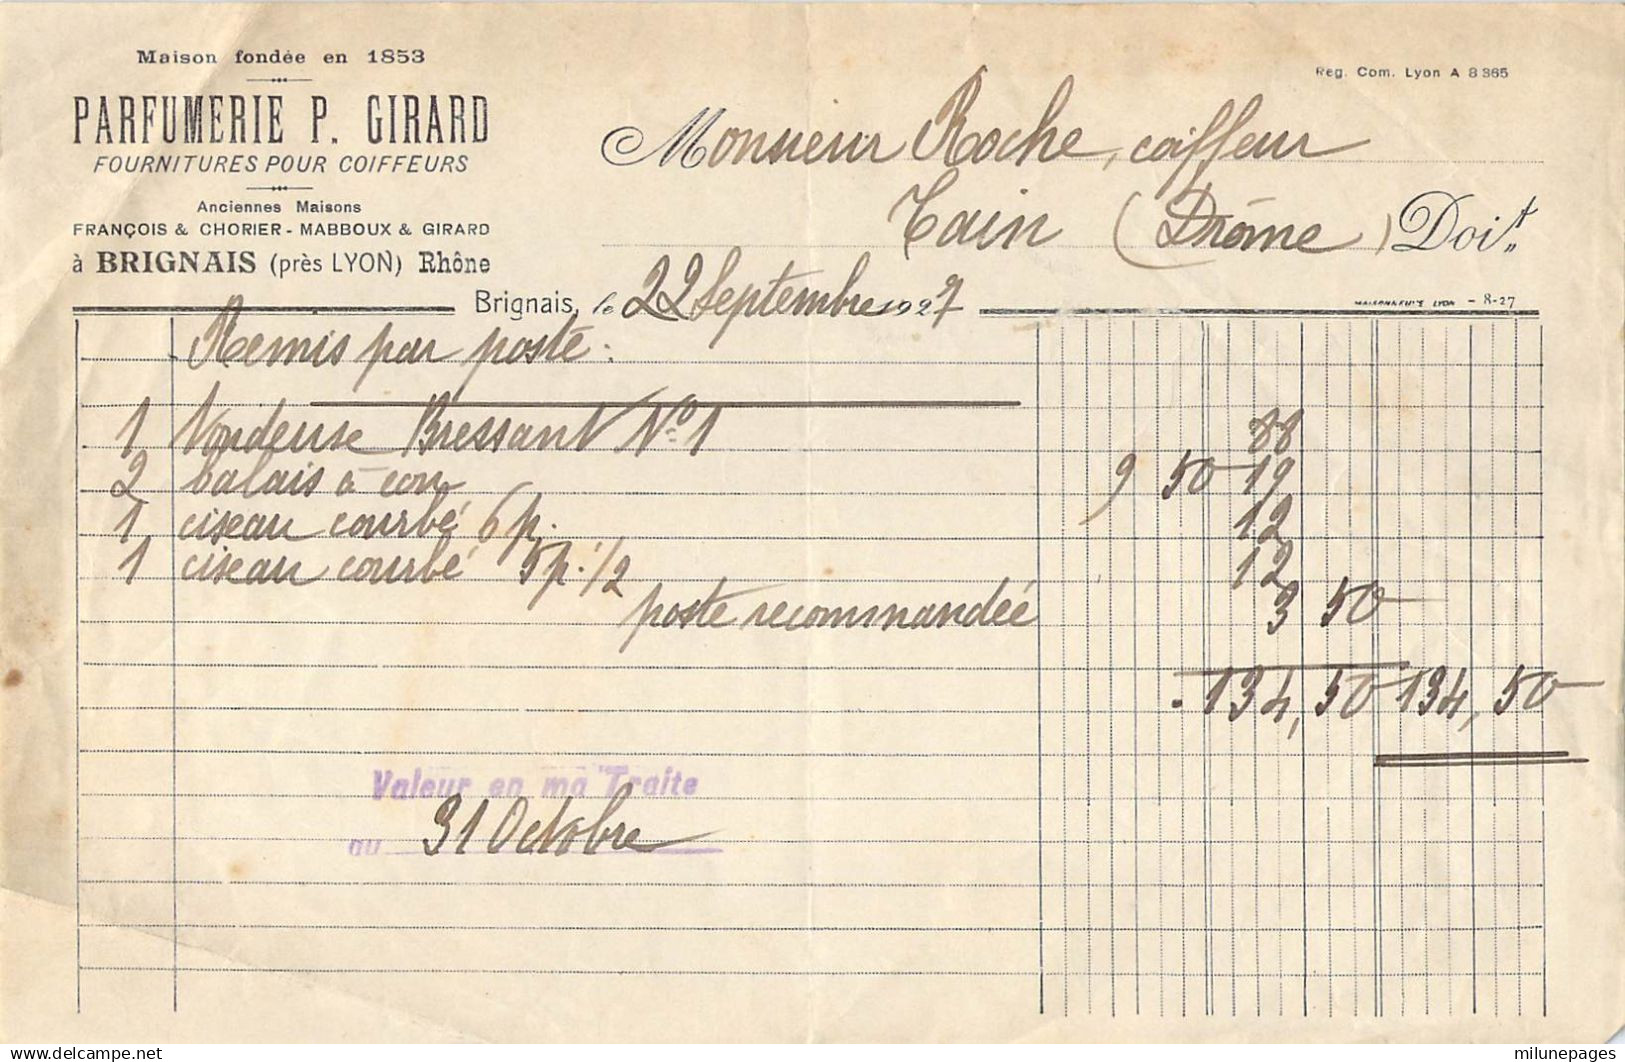 Maison fondée en 1853
PARFUMERIE P. GIRARD
FOURNITURES POUR COIFFEURS
Anciennes Maisons
FRANÇOIS & CHORIER - MABBOUX & GIRARD
à BRIGNAIS (près LYON) Rhône
Reg. Com. Lyon A 8365
Monsieur Roche, coiffeur
Tain (Drôme) Doit
Brignais, le 22 Septembre 1927
MAISONNEUVE LYON - 8-27
Remis par poste :
1 Tondeuse Bressant No 1 88
2 balais à cou 9 50 19
1 ciseau courbé 6 p. 12
1 ciseau courbé 5 p. 1/2 12
poste recommandée 3 50
134,50 134,50
Valeur en ma Traite
au 31 Octobre
milunepages